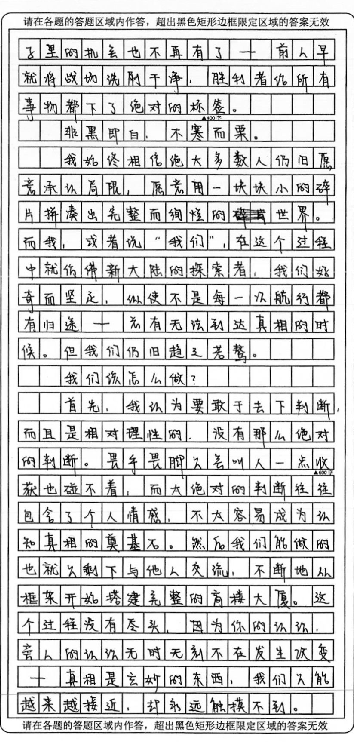 请在各题的答题区域内作答，超出黑色矩形边框限定区域的答案无效
子里的机会也不再有了——前人早
就将战场洗刷干净，胜利者给所有
事物都下了绝对的标签。
▲400字
非黑即白，不寒而栗。
我始终相信绝大多数人仍旧愿
意承认局限，愿意用一块块小的碎
片拼凑出完整而绚烂的世界。
而我，或者说“我们”，在这个过程
中就仿佛新大陆的探索者，我们好
奇而坚定，纵使不是每一次航行都
有归途——总有无法到达真相的时
候。但我们仍旧趋之若鹜。
我们该怎么做？
首先，我认为要敢于去下判断，
而且是相对理性的，没有那么绝对
的判断。畏手畏脚只会叫人一点收
获也碰不着，而太绝对的判断往往
包含了个人情感，不太容易成为认
知真相的奠基石。然后我们能做的
也就只剩下与他人交流，不断地从
框架开始搭建完整的高楼大厦。这
个过程没有尽头，因为你的认识、
旁人的认识无时无刻不在发生改变
——真相是玄妙的东西，我们只能
越来越接近，却永远触摸不到。
请在各题的答题区域内作答，超出黑色矩形边框限定区域的答案无效